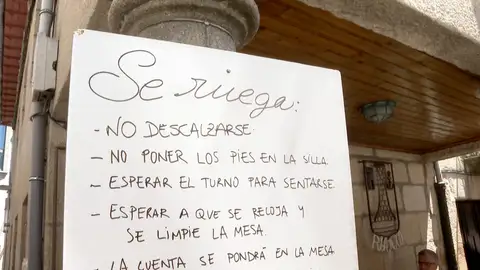 Se ruega:
- NO DESCALZARSE
- NO PONER LOS PIES EN LA SILLA.
- ESPERAR EL TURNO PARA SENTARSE.
- ESPERAR A QUE SE RELOJA Y
SE LIMPIE LA MESA.
- LA CUENTA SE PONDRÁ EN LA MESA